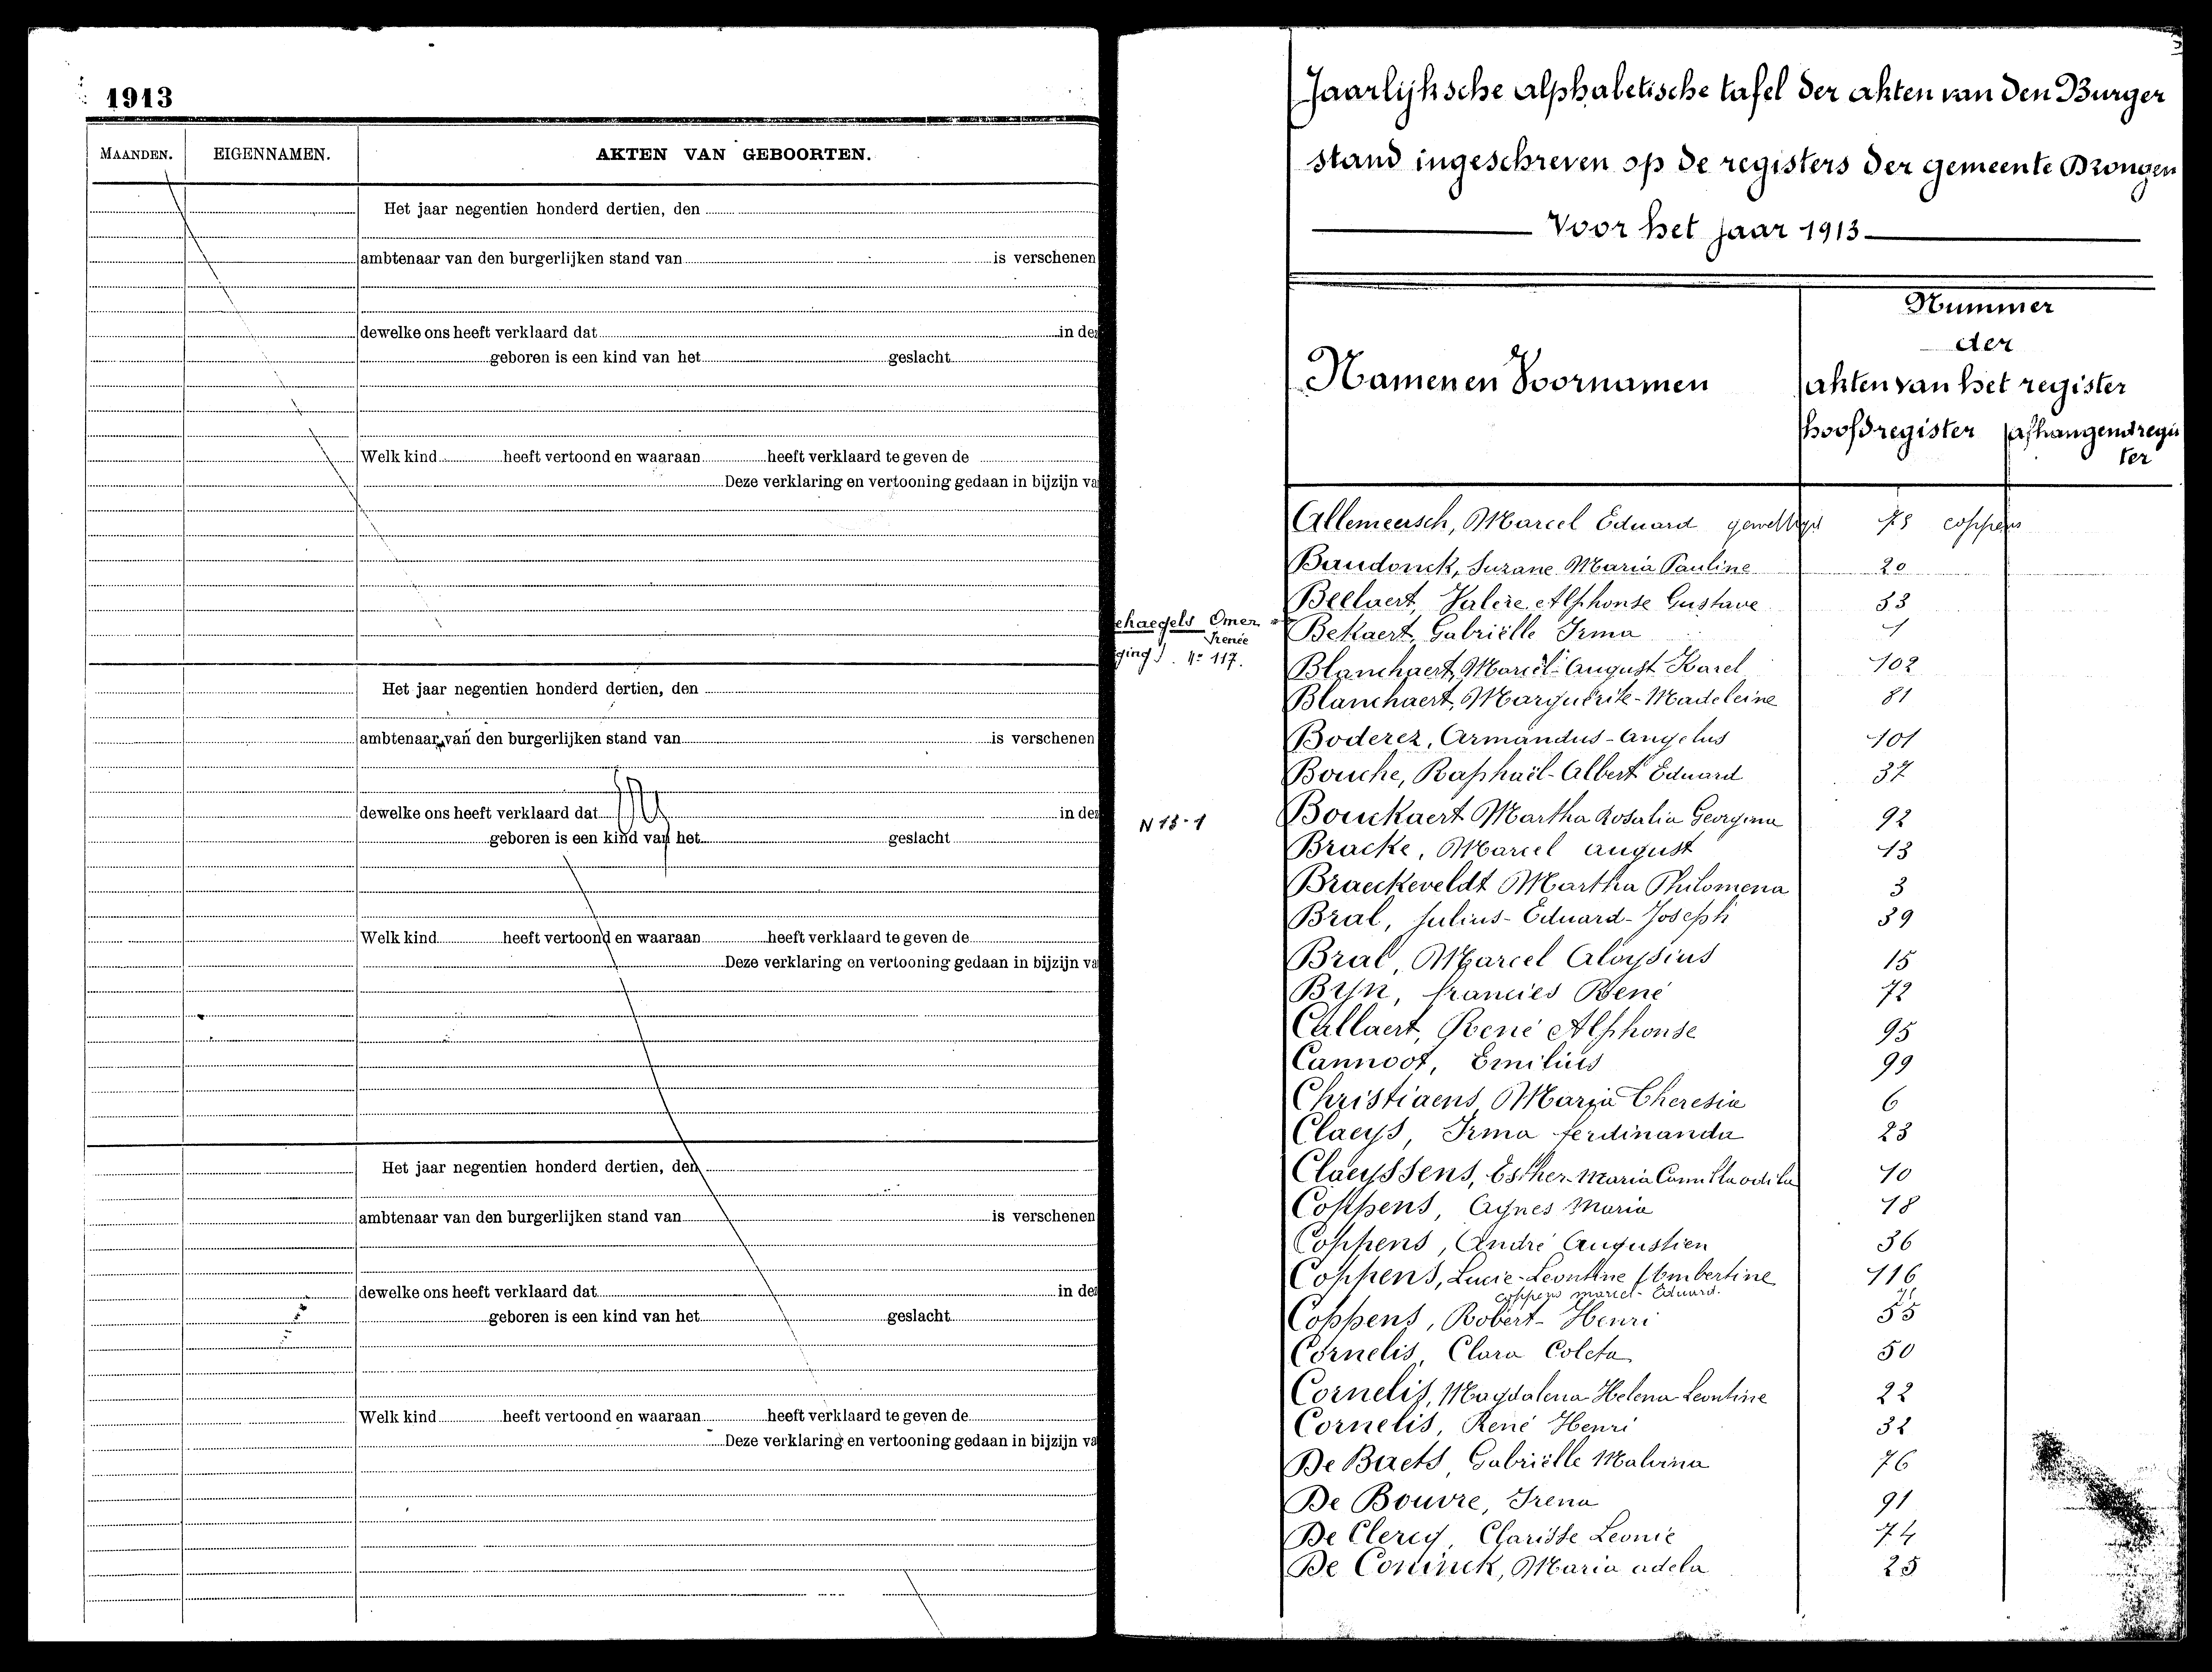 1913
MAANDEN. EIGENNAMEN. AKTEN VAN GEBOORTEN.
Het jaar negentien honderd dertien, den
ambtenaar van den burgerlijken stand van is verschenen
dewelke ons heeft verklaard dat in de
geboren is een kind van het geslacht
Welk kind heeft vertoond en waaraan heeft verklaard te geven de
Deze verklaring en vertooning gedaan in bijzijn va
Het jaar negentien honderd dertien, den
ambtenaar van den burgerlijken stand van is verschenen
dewelke ons heeft verklaard dat in de
geboren is een kind van het geslacht
Welk kind heeft vertoond en waaraan heeft verklaard te geven de
Deze verklaring en vertooning gedaan in bijzijn va
Het jaar negentien honderd dertien, den
ambtenaar van den burgerlijken stand van is verschenen
dewelke ons heeft verklaard dat in de
geboren is een kind van het geslacht
Welk kind heeft vertoond en waaraan heeft verklaard te geven de
Deze verklaring en vertooning gedaan in bijzijn va
Jaarlijksche alphabetische tafel der akten van den Burger
stand ingeschreven op de registers der gemeente Drongen
Voor het jaar 1913
Namen en Voornamen
Nummer
der
akten van het register
hoofdregister afhangend regis
ter
Allemeersch, Marcel Eduard gewettigd 75 coppens
Baudonck, Suzane Maria Pauline 20
Beelaert, Valere Alphonse Gustave 33
ehaegels Omer
Irenée
ging). No 117.
Bekaert, Gabriëlle Irma 1
Blanchaert, Marcel-August Karel 102
Blanchaert, Marguerite-Madeleine 81
Boderez, Armandus-Angelus 101
Bouche, Raphaël-Albert Eduard 37
Bouckaert Martha Rosalia Georgina 92
N 13-1
Bracke, Marcel August 13
Braeckeveldt Martha Philomena 3
Bral, Julius-Eduard-Joseph 39
Bral, Marcel Aloysius 15
Byn, francies René 72
Callaert, René Alphonse 95
Cannoot, Emilius 99
Christiaens, Maria Theresia 6
Claeys, Irma ferdinanda 23
Claeyssens, Esther Maria Camilla odila 10
Coppens, Agnes Maria 18
Coppens, André Augustien 36
Coppens, Lucie-Leontine 116
coppens marcel-Eduard.
Coppens, Robert-Henri 55
Cornelis, Clara Coleta 50
Cornelis, Magdalena Helena Leontine 22
Cornelis, René Henri 32
De Baets, Gabriëlle Malvina 76
De Bouvre, Irena 91
De Clercq, Clarisse Leonie 74
De Coninck, Maria adela 25